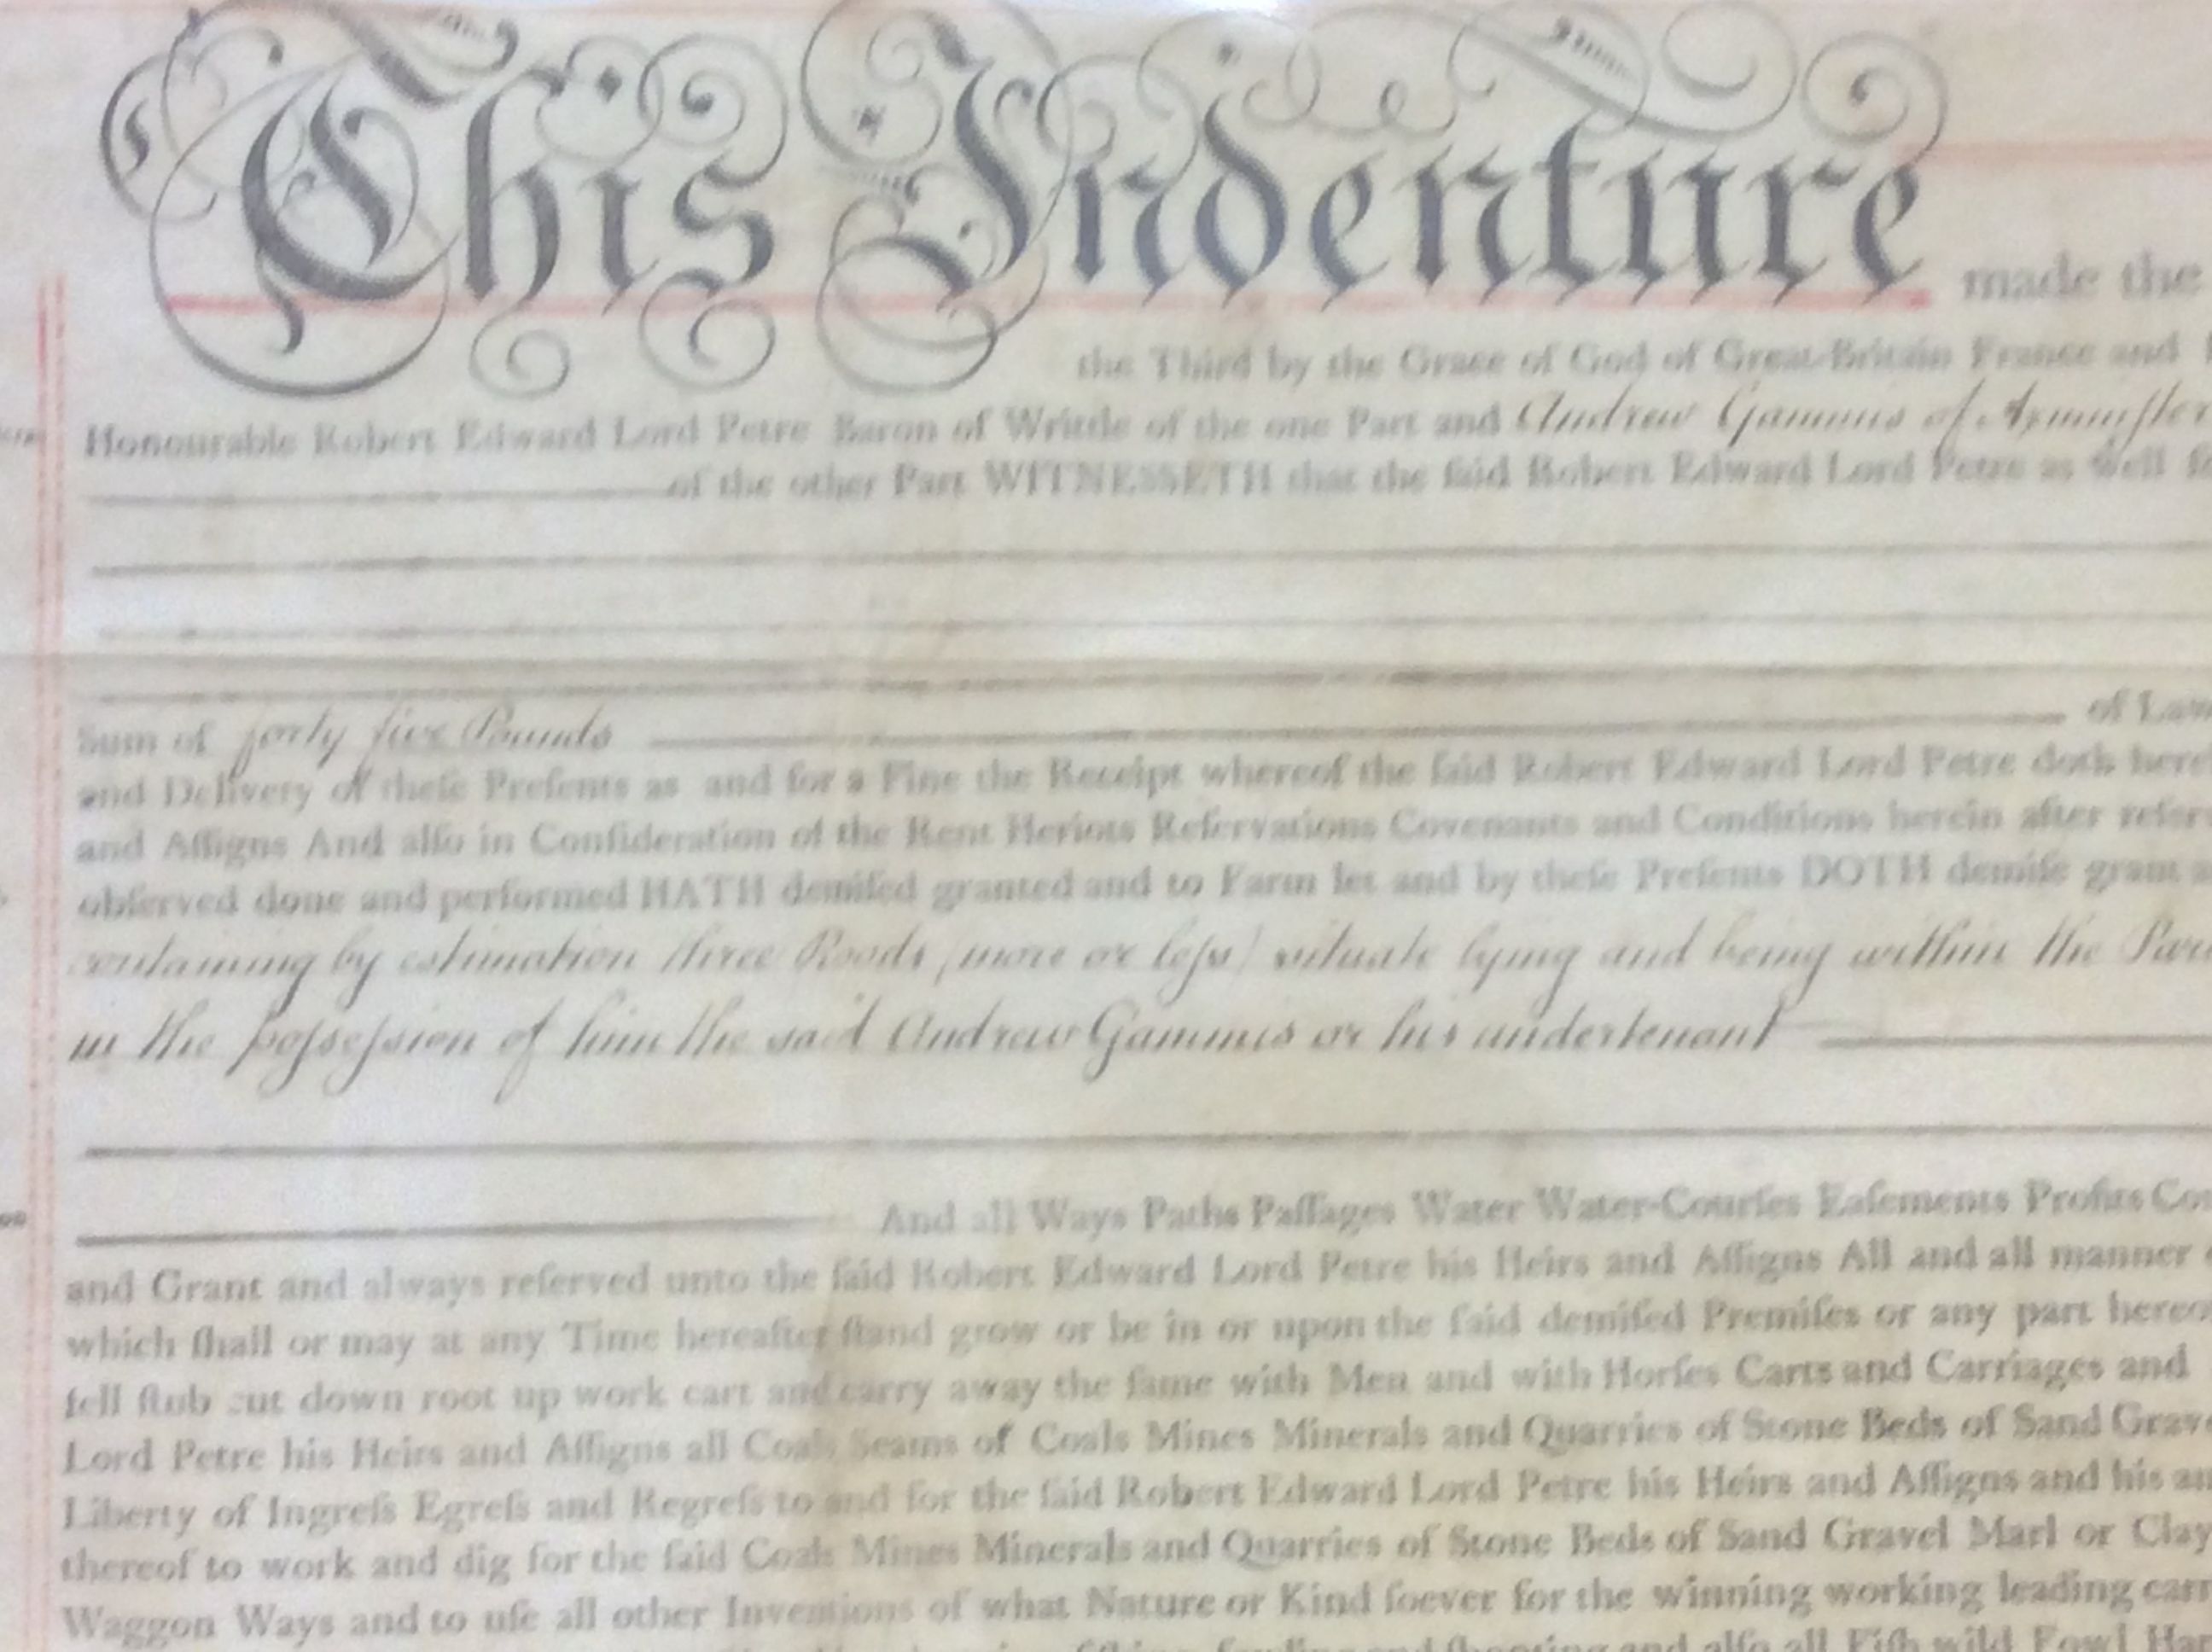 This Indenture made the
the Third by the Grace of God of Great-Britain France and
Honourable Robert Edward Lord Petre Baron of Writtle of the one Part and Andrew Gammis of Axminster
of the other Part WITNESSETH that the ſaid Robert Edward Lord Petre as well
Sum of forty five Pounds of
and Delivery of theſe Preſents as and for a Fine the Receipt whereof the ſaid Robert Edward Lord Petre doth
and Aſſigns And alſo in Conſideration of the Rent Heriots Reſervations Covenants and Conditions herein after
obſerved done and performed HATH demiſed granted and to Farm let and by theſe Preſents DOTH demiſe grant
containing by estimation three Roods (more or leſs) situate lying and being within the
in the poſseſsion of him the said Andrew Gammis or his undertenant
And all Ways Paths Paſſages Water Water-Courſes Eaſements Profits
and Grant and always reſerved unto the ſaid Robert Edward Lord Petre his Heirs and Aſſigns All and all manner
which ſhall or may at any Time hereafter ſtand grow or be in or upon the ſaid demiſed Premiſes or any part
fell ſtub cut down root up work cart and carry away the ſame with Men and with Horſes Carts and Carriages and
Lord Petre his Heirs and Aſſigns all Coals Seams of Coals Mines Minerals and Quarries of Stone Beds of Sand
Liberty of Ingreſs Egreſs and Regreſs to and for the ſaid Robert Edward Lord Petre his Heirs and Aſſigns and his
thereof to work and dig for the ſaid Coals Mines Minerals and Quarries of Stone Beds of Sand Gravel Marl or Clay
Waggon Ways and to uſe all other Inventions of what Nature or Kind ſoever for the winning working leading
and ſhooting and alſo all Fiſh wild Fowl